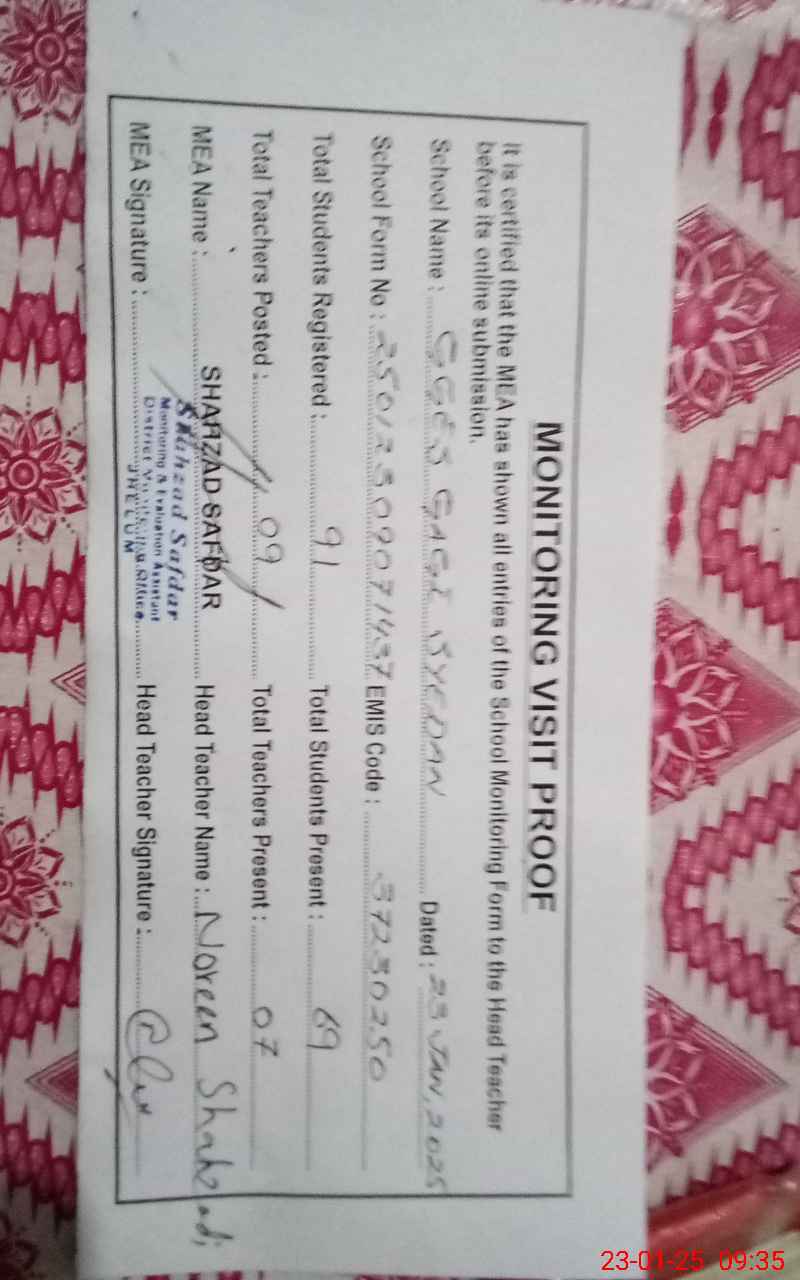 MONITORING VISIT PROOF
It is certified that the MEA has shown all entries of the School Monitoring Form to the Head Teacher
before its online submission.
School Name : GGES GAGI SYEDAN Dated : 23 JAN, 2025
School Form No : EMIS Code : 37230250
Total Students Registered : 91 Total Students Present : 69
Total Teachers Posted : 09 Total Teachers Present : 07
MEA Name : SHAHZAD SAFDAR Head Teacher Name : Noreen Shahzadi
Shahzad Safdar
Monitoring & Evaluation Assistant
District Monitoring Office
JHELUM
MEA Signature : Head Teacher Signature :
23-01-25 09:35